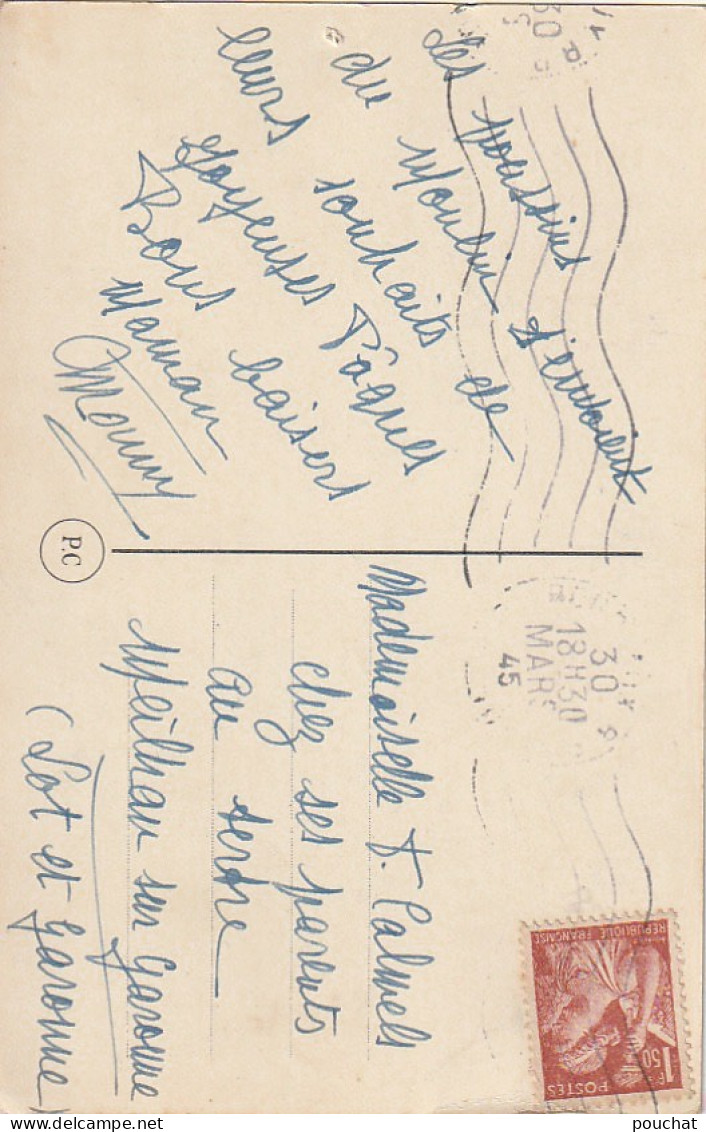 Les poussins
du Moulin t'envoient
leurs souhaits de
Joyeuses Pâques
Bons baisers
Maman
P.C
Mademoiselle F. Calmels
chez ses parents
au tertre
Meilhan sur Garonne
(Lot et Garonne)
18H30
30
MARS
45
REPUBLIQUE FRANÇAISE
1F50
POSTES
pouchat